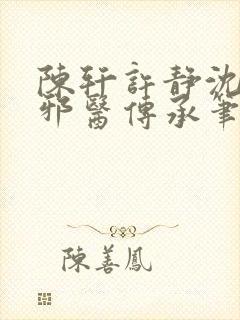 陳軒許靜沈
邪醫傳承筆
陳善鳳